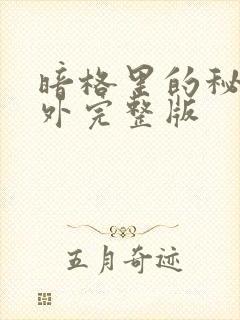 暗格里的秘
外完整版
五月奇迹